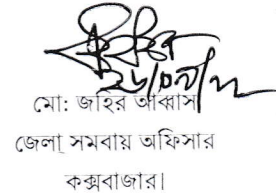 মো: জহির আব্বাস
জেলা সমবায় অফিসার
কক্সবাজার।